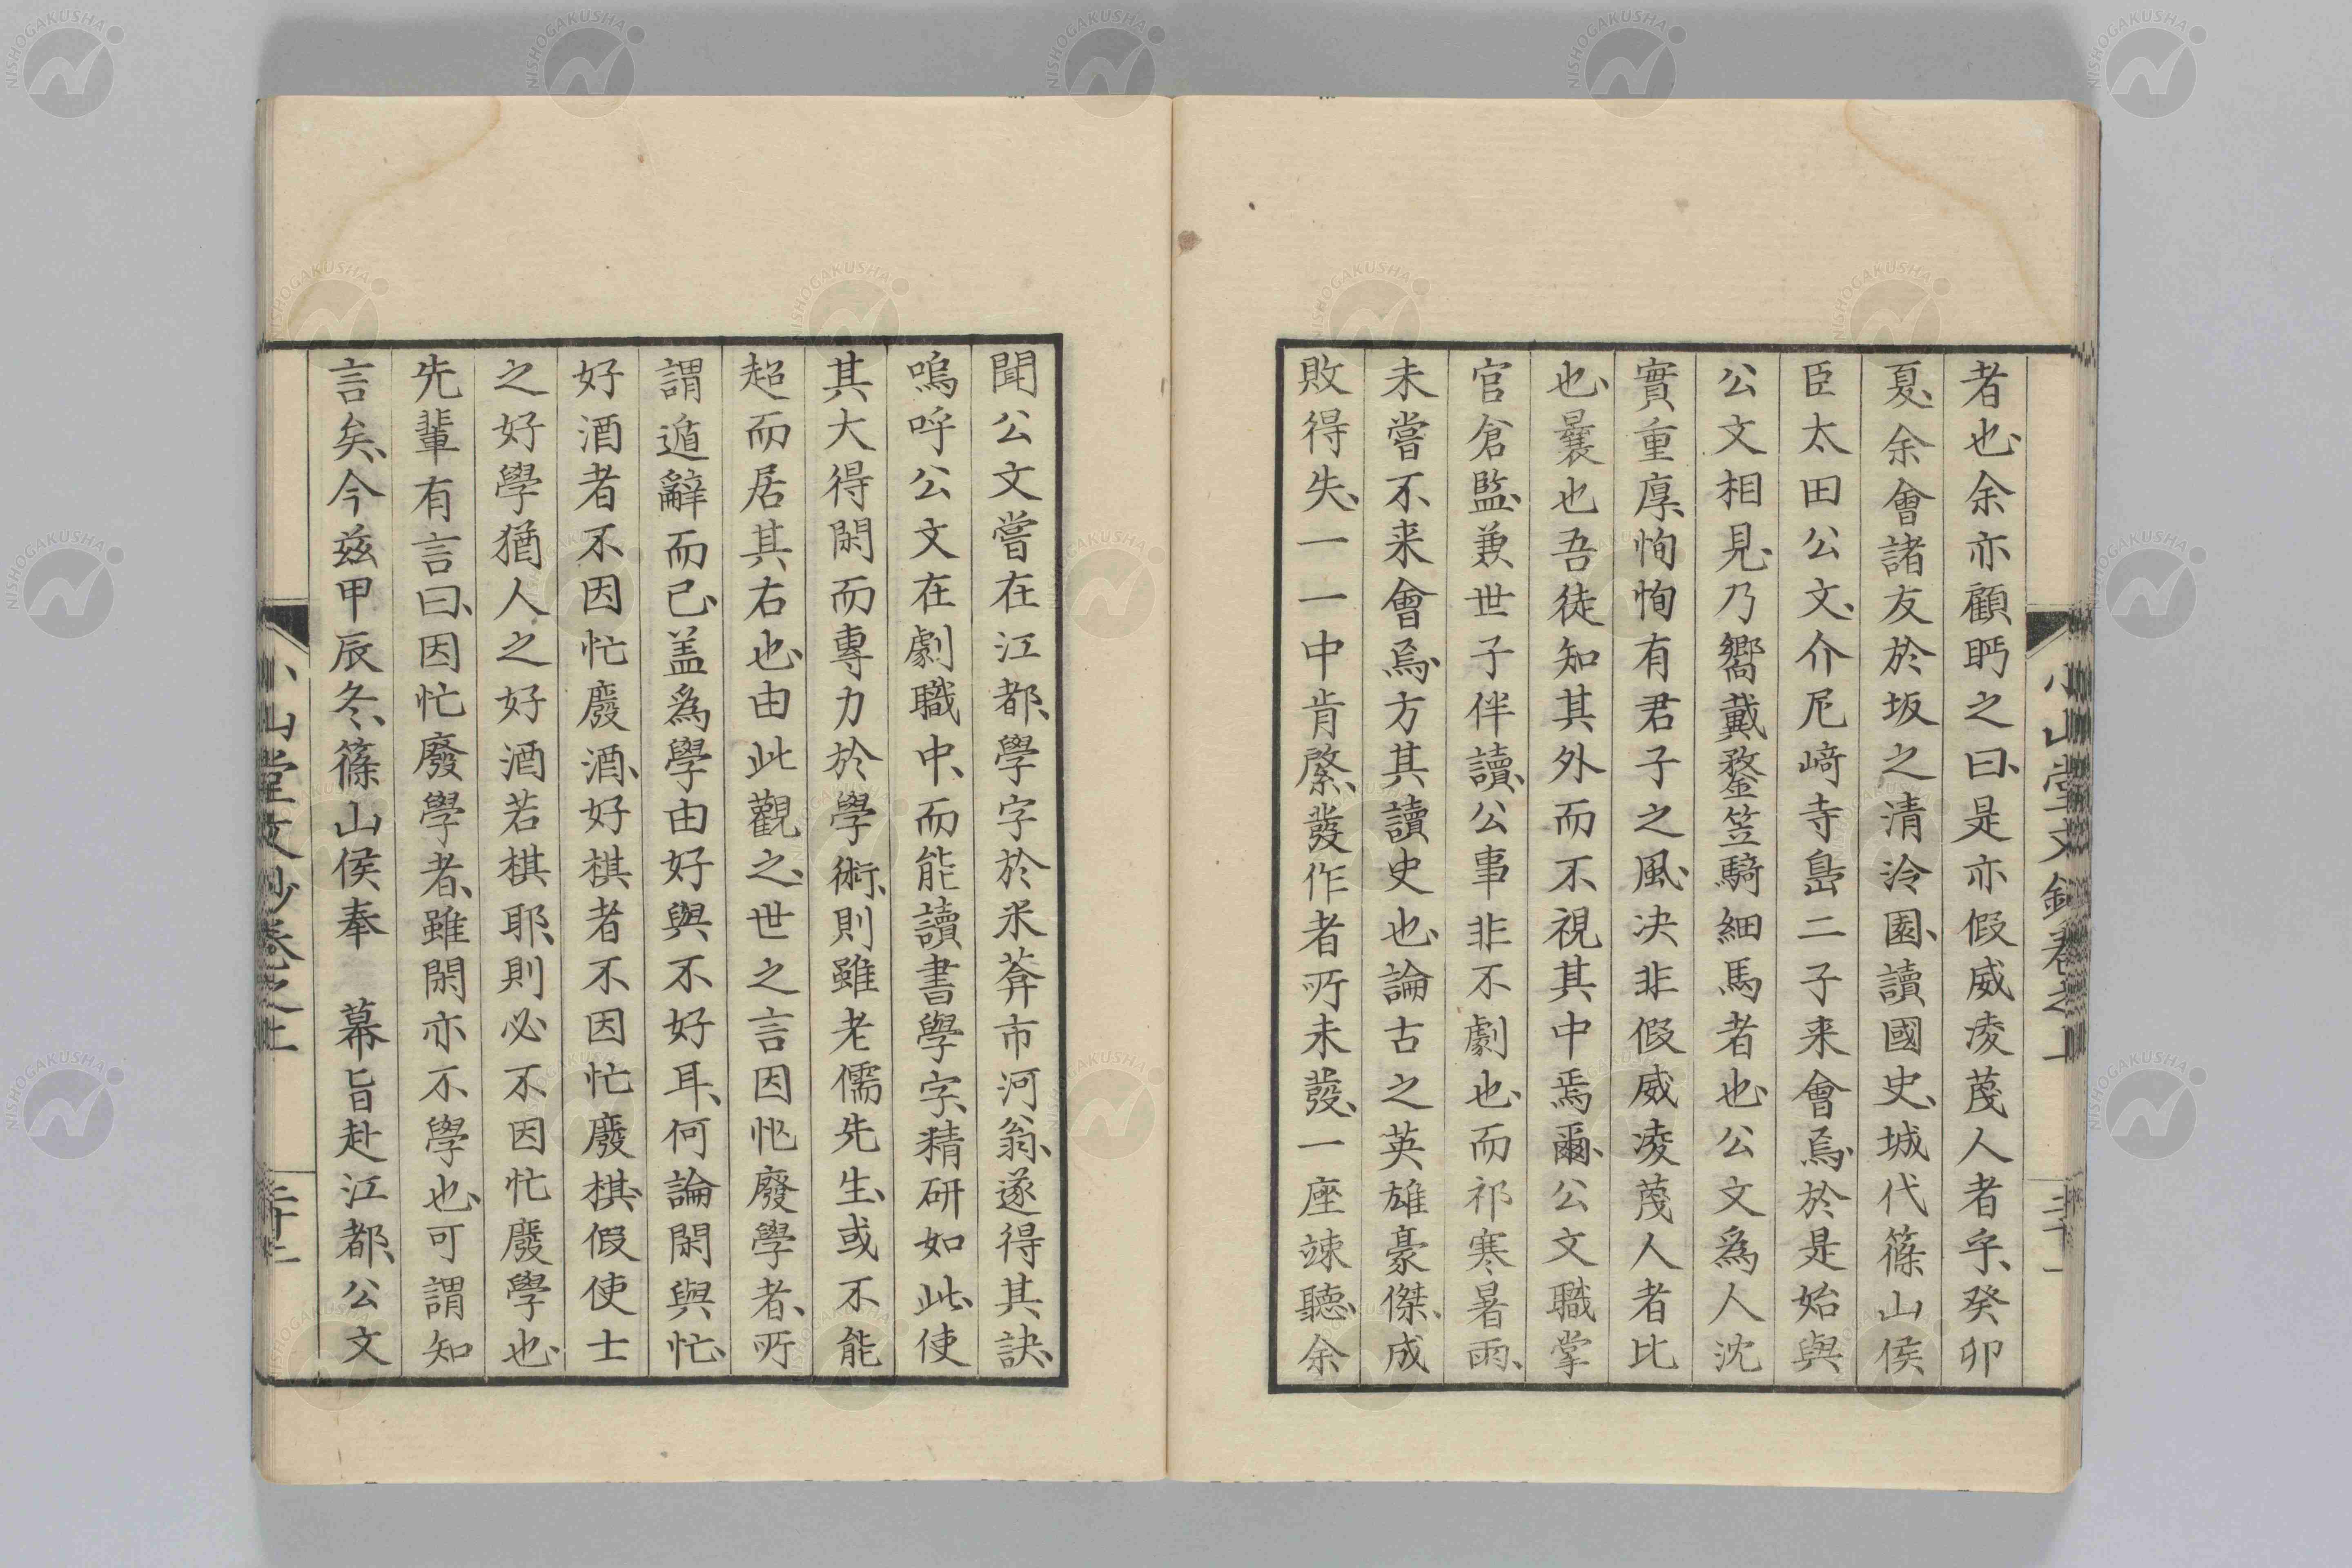 者也、余亦顧眄之曰、是亦假威凌蔑人者乎、癸卯
夏、余會諸友於坂之清泠園、讀國史、城代篠山侯
臣太田公文、介尼﨑寺島二子来會焉、於是始與
公文相見、乃嚮戴鍪笠騎細馬者也、公文爲人沈
實重厚、恂恂有君子之風、决非假威凌蔑人者比
也、曩也吾徒知其外而不視其中焉爾、公文職掌
官倉監、兼世子伴讀、公事非不劇也、而祁寒暑雨、
未嘗不来會焉、方其讀史也、論古之英雄豪傑、成
敗得失、一一中肯綮、發作者所未發、一座竦聽、余
聞公文嘗在江都、學字於米葊市河翁、遂得其訣、
嗚呼公文在劇職中、而能讀書學字、精研如此、使
其大得閑而專力於學術、則雖老儒先生、或不能
超而居其右也、由此觀之、世之言因忙廢學者、所
謂遁辭而已、盖爲學由好與不好耳、何論閑與忙、
好酒者不因忙廢酒、好棋者不因忙廢棋、假使士
之好學猶人之好酒若棋耶、則必不因忙廢學也、
先輩有言曰、因忙廢學者、雖閑亦不學也、可謂知
言矣、今玆甲辰冬、篠山侯奉　幕旨赴江都、公文
小山堂文鈔卷之上
NISHOGAKUSHA